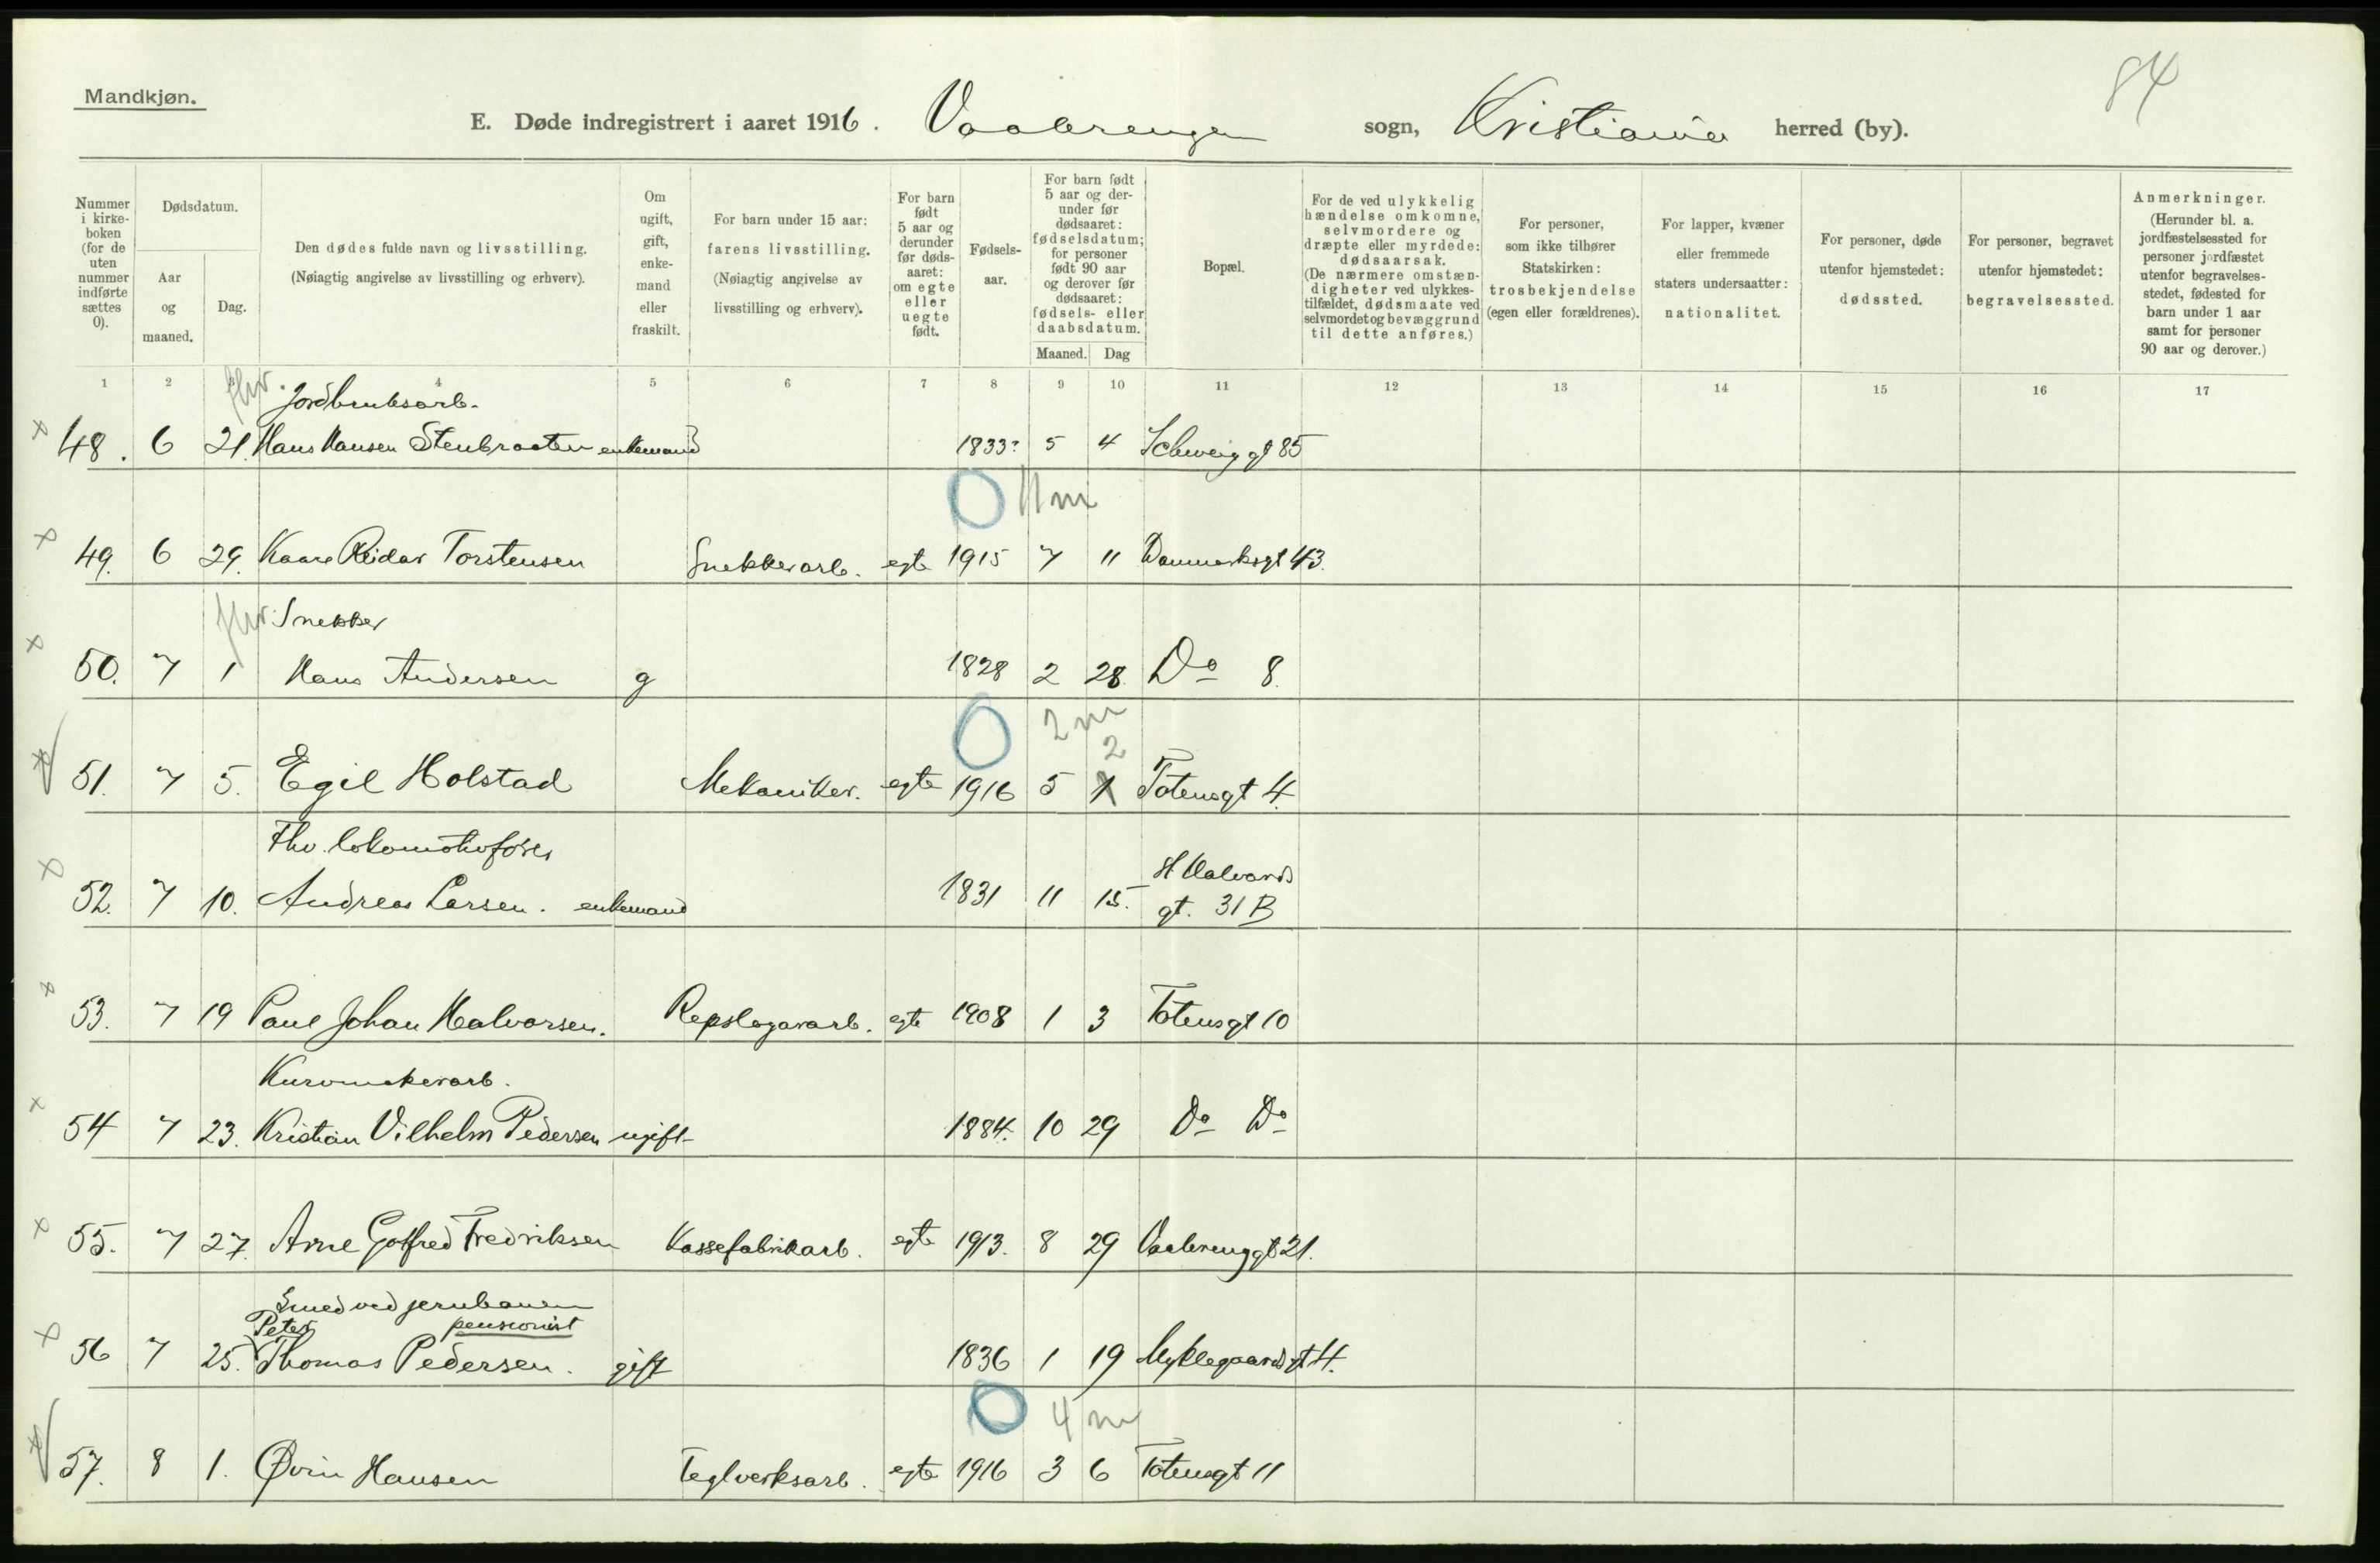 Mandkjøn.
84
E. Døde indregistrert i aaret 1916. Vaalerengen sogn, Kristiania herred (by).
Nummer i kirkeboken (for de uten nummer indførte sættes 0).
Dødsdatum.
Aar og maaned.
Dag.
Den dødes fulde navn og livsstilling. (Nøiagtig angivelse av livsstilling og erhverv).
Om ugift, gift, enkemand eller fraskilt.
For barn under 15 aar: farens livsstilling. (Nøiagtig angivelse av livsstilling og erhverv).
For barn født 5 aar og derunder før dødsaaret: om egte eller uegte født.
Fødselsaar.
For barn født 5 aar og derunder før dødsaaret: fødselsdatum; for personer født 90 aar og derover før dødsaaret: fødsels- eller daabsdatum.
Maaned. Dag
Bopæl.
For de ved ulykkelig hændelse omkomne, selvmordere og dræpte eller myrdede: dødsaarsak. (De nærmere omstændigheter ved ulykkestilfældet, dødsmaate ved selvmordet og bevæggrund til dette anføres.)
For personer, som ikke tilhører Statskirken: trosbekjendelse (egen eller forældrenes).
For lapper, kvæner eller fremmede staters undersaatter: nationalitet.
For personer, døde utenfor hjemstedet: dødssted.
For personer, begravet utenfor hjemstedet: begravelsessted.
Anmerkninger. (Herunder bl. a. jordfæstelsessted for personer jordfæstet utenfor begravelsesstedet, fødested for barn under 1 aar samt for personer 90 aar og derover.)
1 2 3 4 5 6 7 8 9 10 11 12 13 14 15 16 17
fhv. Jordbruksarb.
x 48. 6 21. Hans Hansen Stenbraaten enkemand 1833? 5 4 Schweiggt 85
0 11 m
x 49. 6 29. Kaare Reidar Torstensen Snekkerarb. egte 1915 7 11 Danmarksgt 43.
fhv. Snekker
x 50. 7 1 Hans Andersen g 1828 2 28. Do 8.
0 2 m
2
x 51. 7 5. Egil Holstad Mekaniker. egte 1916 5 1 Totensgt 4.
Fhv. lokomotivfører
x 52. 7 10. Andreas Larsen. enkemand 1831 11 15. St Halvards gt. 31 B
x 53. 7 19 Paul Johan Halvorsen. Repslagerarb. egte 1908 1 3 Totensgt 10
Kurvmakerarb.
x 54 7 23. Kristian Vilhelm Pedersen ugift 1884. 10 29 Do Do
x 55. 7 27. Arne Gotfred Fredriksen Kassefabrikarb. egte 1913. 8 29 Vaalerenggt 21.
Smed ved jernbanen
Peter pensionist
x 56 7 25. Thomas Pedersen. gift 1836 1 19 Myklegaardsgt 4.
0 4 m
x 57. 8 1. Øivin Hansen Teglverksarb. egte 1916 3 6 Totensgt 11